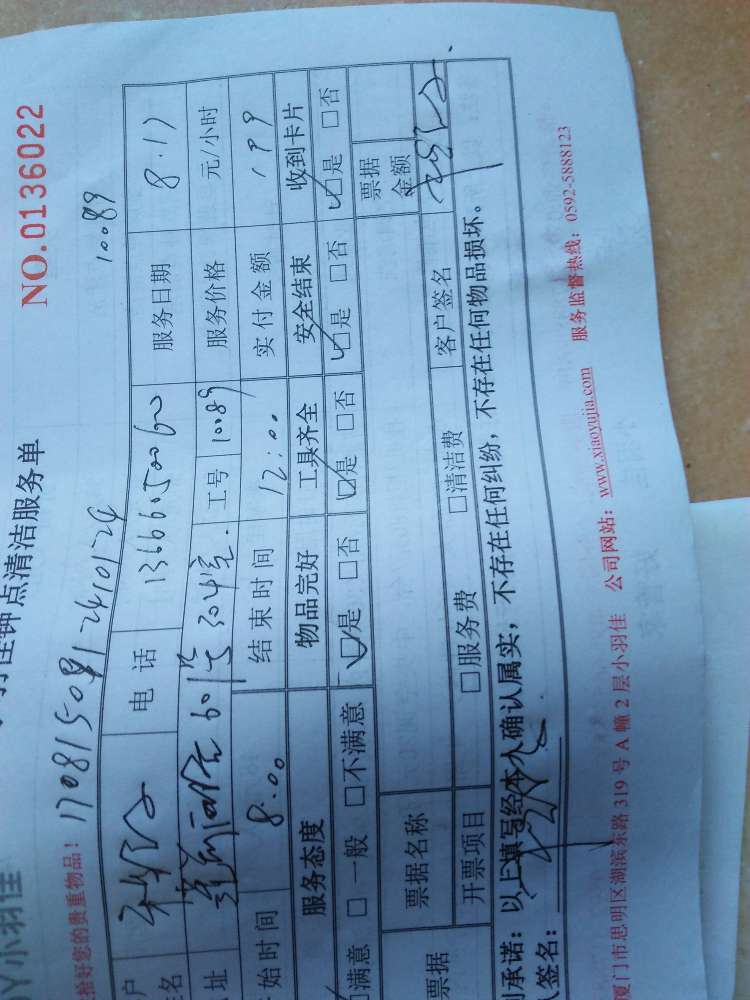 小羽佳
羽佳钟点清洁服务单
NO.0136022
拾好您的贵重物品! 170815081240124
10089
户 电 话 13666050060 服务日期 8.17
址 601 304室. 工号 10089 服务价格 元/小时
始时间 8:00 结束时间 12:00 实付金额 199
服务态度 物品完好 工具齐全 安全结束 收到卡片
满意 □ 一般 □不满意 □是 □否 □是 □否 □是 □否 □是 □否
票据 票据名称 票据金额
开票项目 □服务费 □清洁费 客户签名
承诺: 以上填写经本人确认属实, 不存在任何纠纷, 不存在任何物品损坏。
签名:
厦门市思明区湖滨东路 319 号 A 幢 2 层小羽佳 公司网站: www.xiaoyujia.com 服务监督热线: 0592-5888123